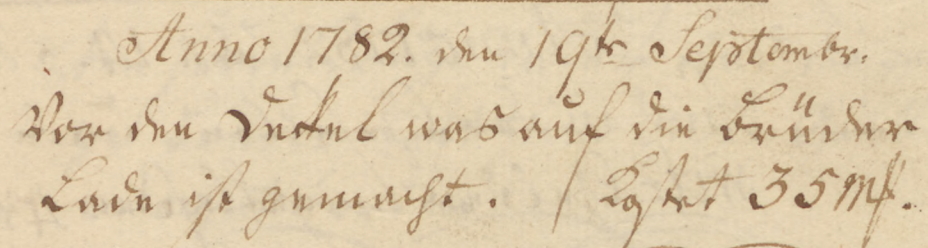 Anno 1782. den 19ts Septembr.
Vor den Deckel was auf die Brüder
Lade ist gemacht. Kostet 35 mß.